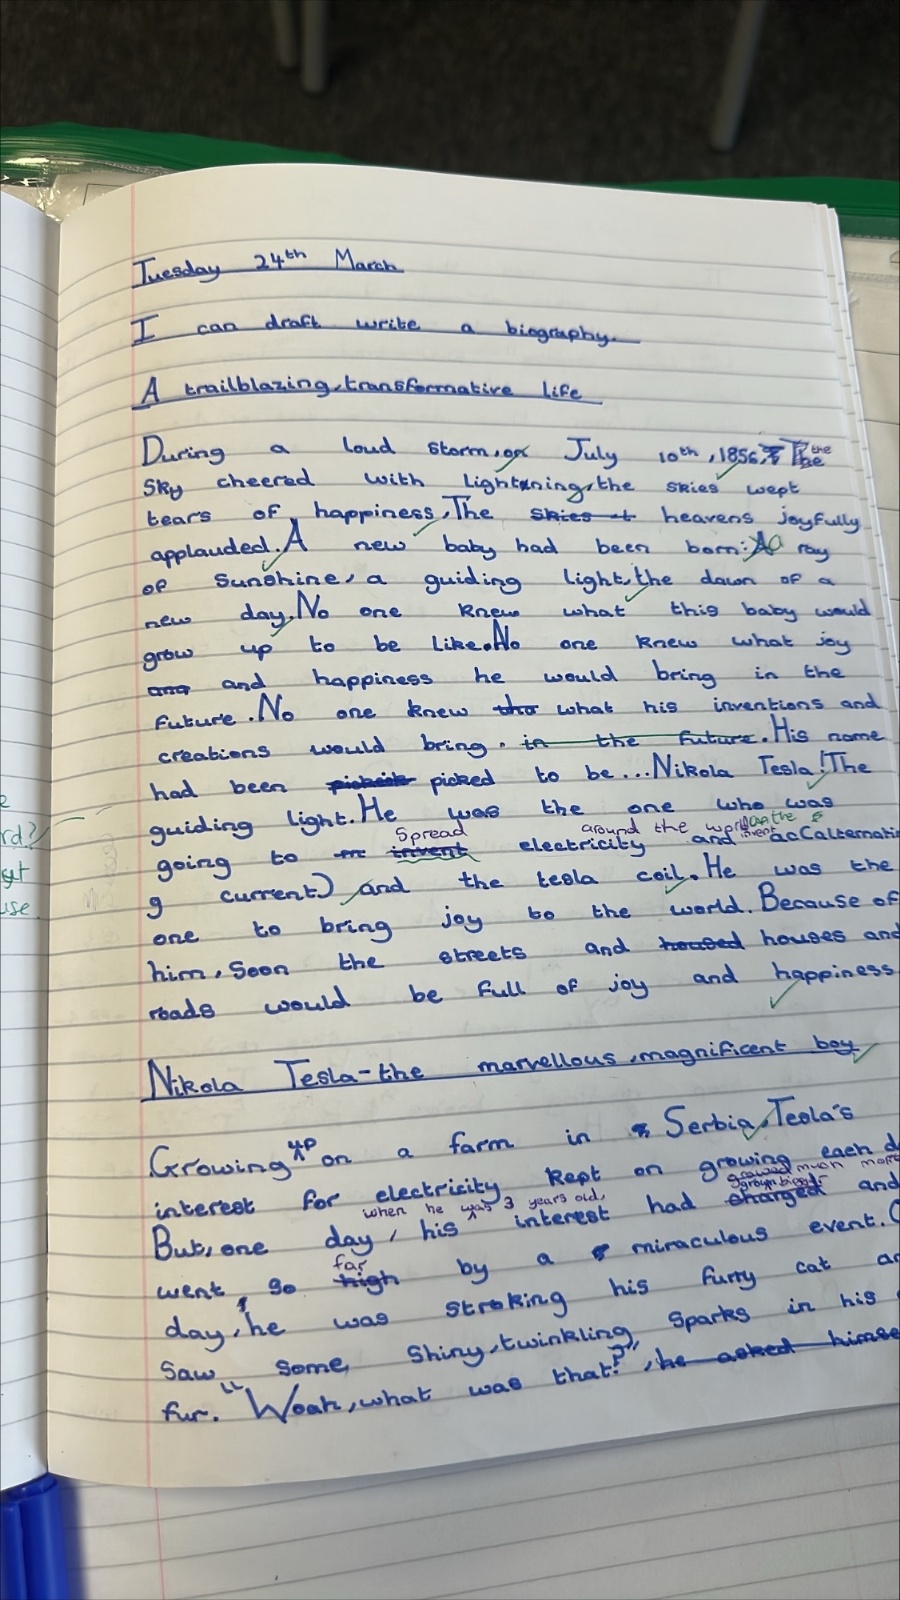 Tuesday 24th March
I can draft write a biography.
A trailblazing, transformative life
During a loud storm, on July 10th, 1856, the
sky cheered with lightning, the skies wept
tears of happiness, The skies heavens joyfully
applauded. A new baby had been born: A ray
of sunshine, a guiding light, the dawn of a
new day. No one knew what this baby would
grow up to be like. No one knew what joy
and and happiness he would bring in the
future. No one knew what his inventions and
creations would bring. in the future. His name
had been picked to be... Nikola Tesla! The
guiding light. He was the one who was
Spread around the world
going to invent electricity and invent ac (alternatin
g current) and the tesla coil. He was the
one to bring joy to the world. Because of
him, soon the streets and housed houses and
roads would be full of joy and happiness
Nikola Tesla - the marvellous, magnificent boy
up
Growing on a farm in Serbia, Tesla's
interest for electricity kept on growing each d
when he was 3 years old,
But, one day, his interest had charged and
far
went so high by a miraculous event.
day, he was stroking his furry cat
saw some shiny, twinkling sparks in his
fur. "Woah, what was that?", he asked himse
rd?
use.